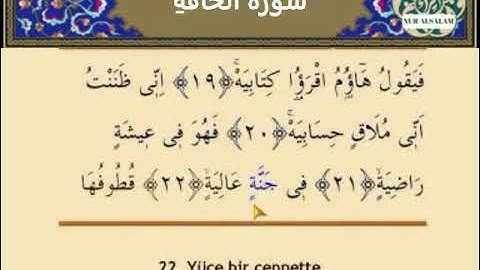 سورة الحاقة
NUR ALSALAM
فَيَقُولُ هَٓاؤُ۬مُ اقْرَؤُ۫ا كِتَابِيَهْۚ ﴿١٩﴾ اِنّٖى ظَنَنْتُ
اَنّٖى مُلَاقٍ حِسَابِيَهْۚ ﴿٢٠﴾ فَهُوَ فٖى عٖيشَةٍ
رَاضِيَةٍۙ ﴿٢١﴾ فٖى جَنَّةٍ عَالِيَةٍۙ ﴿٢٢﴾ قُطُوفُهَا
22. Yüce bir cennette